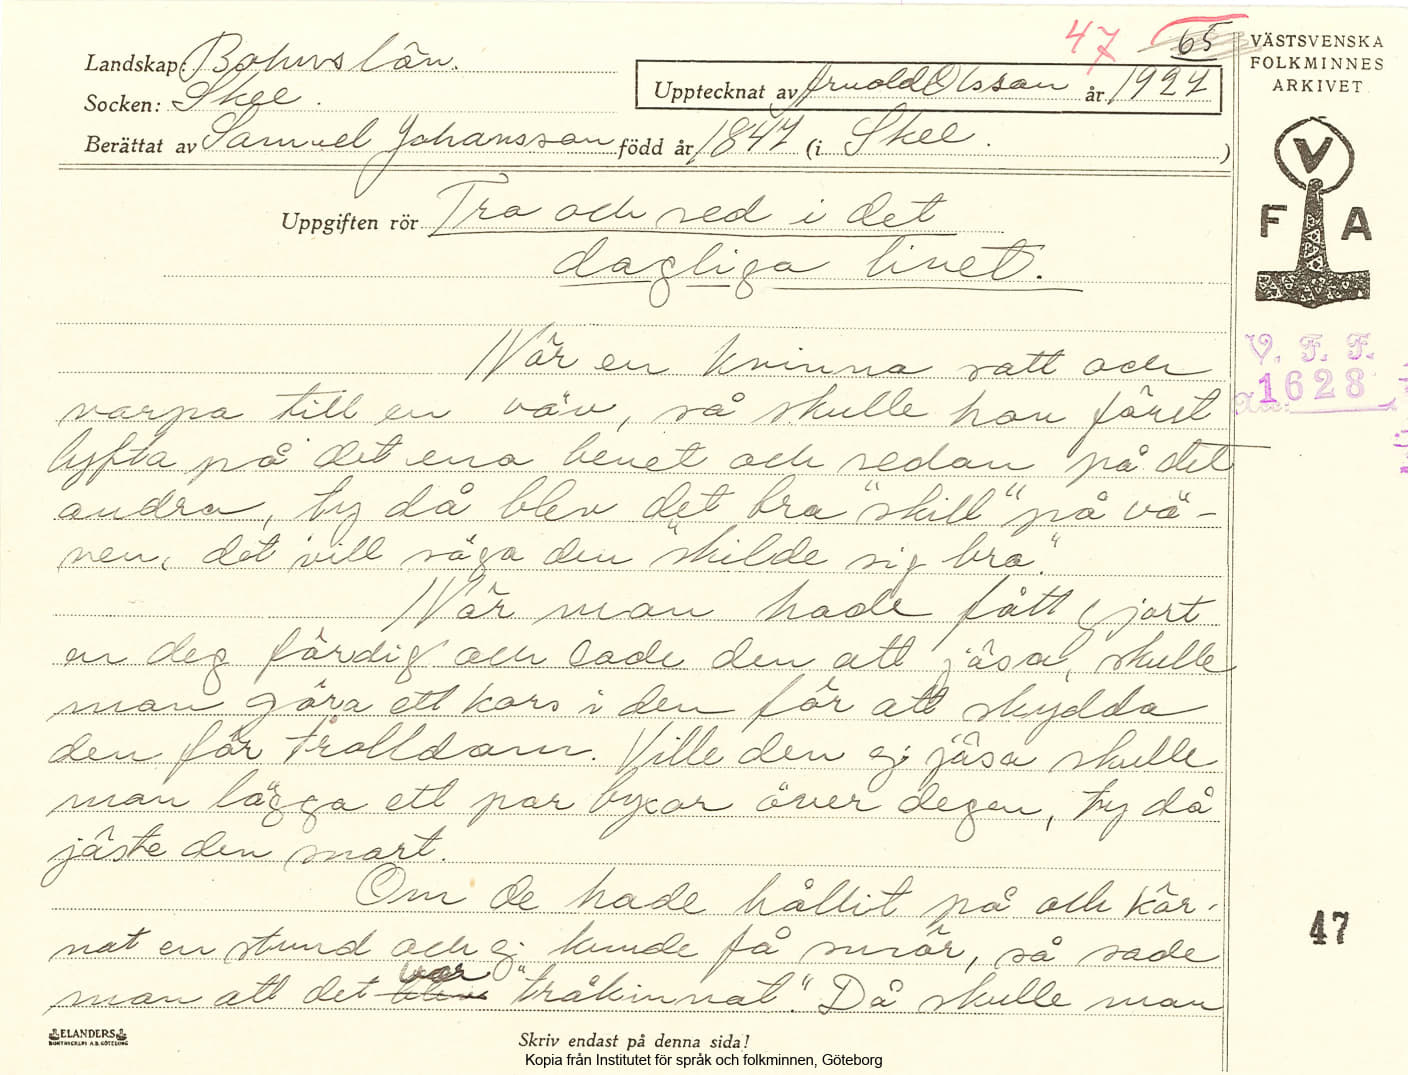 47 65
VÄSTSVENSKA
FOLKMINNES
ARKIVET
Landskap: Bohuslän.
Upptecknat av Arnold Olsson år 1927
Socken: Skee.
Berättat av Samuel Johansson född år 1847 (i Skee. )
V
F A
Uppgiften rör Tro och sed i det
dagliga livet.
V. F. F.
1628
När en kvinna satt och
varpa till en väv, så skulle hon först
lyfta på det ena benet och sedan på det
andra, ty då blev det bra "skill" på vä-
ven, det vill säga den "skilde sig bra."
När man hade fått gjort
en deg färdig och lade den att jäsa, skulle
man göra ett kors i den för att skydda
den för trolldom. Ville den ej jäsa skulle
man lägga ett par byxor över degen, ty då
jäste den snart.
Om de hade hållit på och kär-
nat en stund och ej kunde få smör, så sade
man att det var "tråkinnat." Då skulle man
47
ELANDERS
BOKTRYCKERI A.B. GÖTEBORG
Skriv endast på denna sida!
Kopia från Institutet för språk och folkminnen, Göteborg